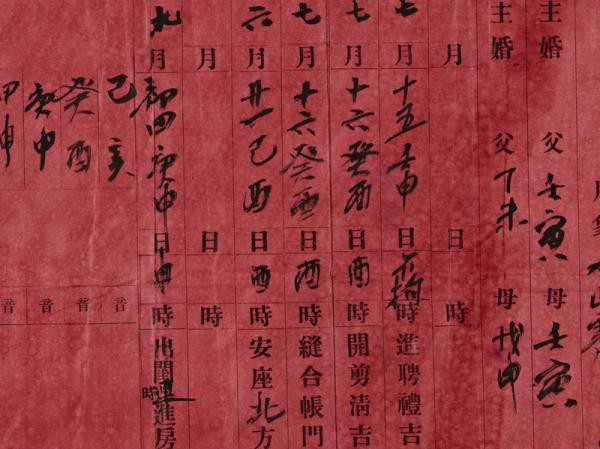 主婚 父 壬寅 母 壬寅
主婚 父 丁未 母 戊申
月 日 時
七月十五壬申日不拘時進聘禮吉
七月十六癸酉日酉時開剪淸吉
七月十六癸酉日酉時縫合帳門
六月廿一己酉日酉時安座北方
月 日 時
九月初四庚申日申時出閨 時進房
己亥
癸酉
庚申
甲申